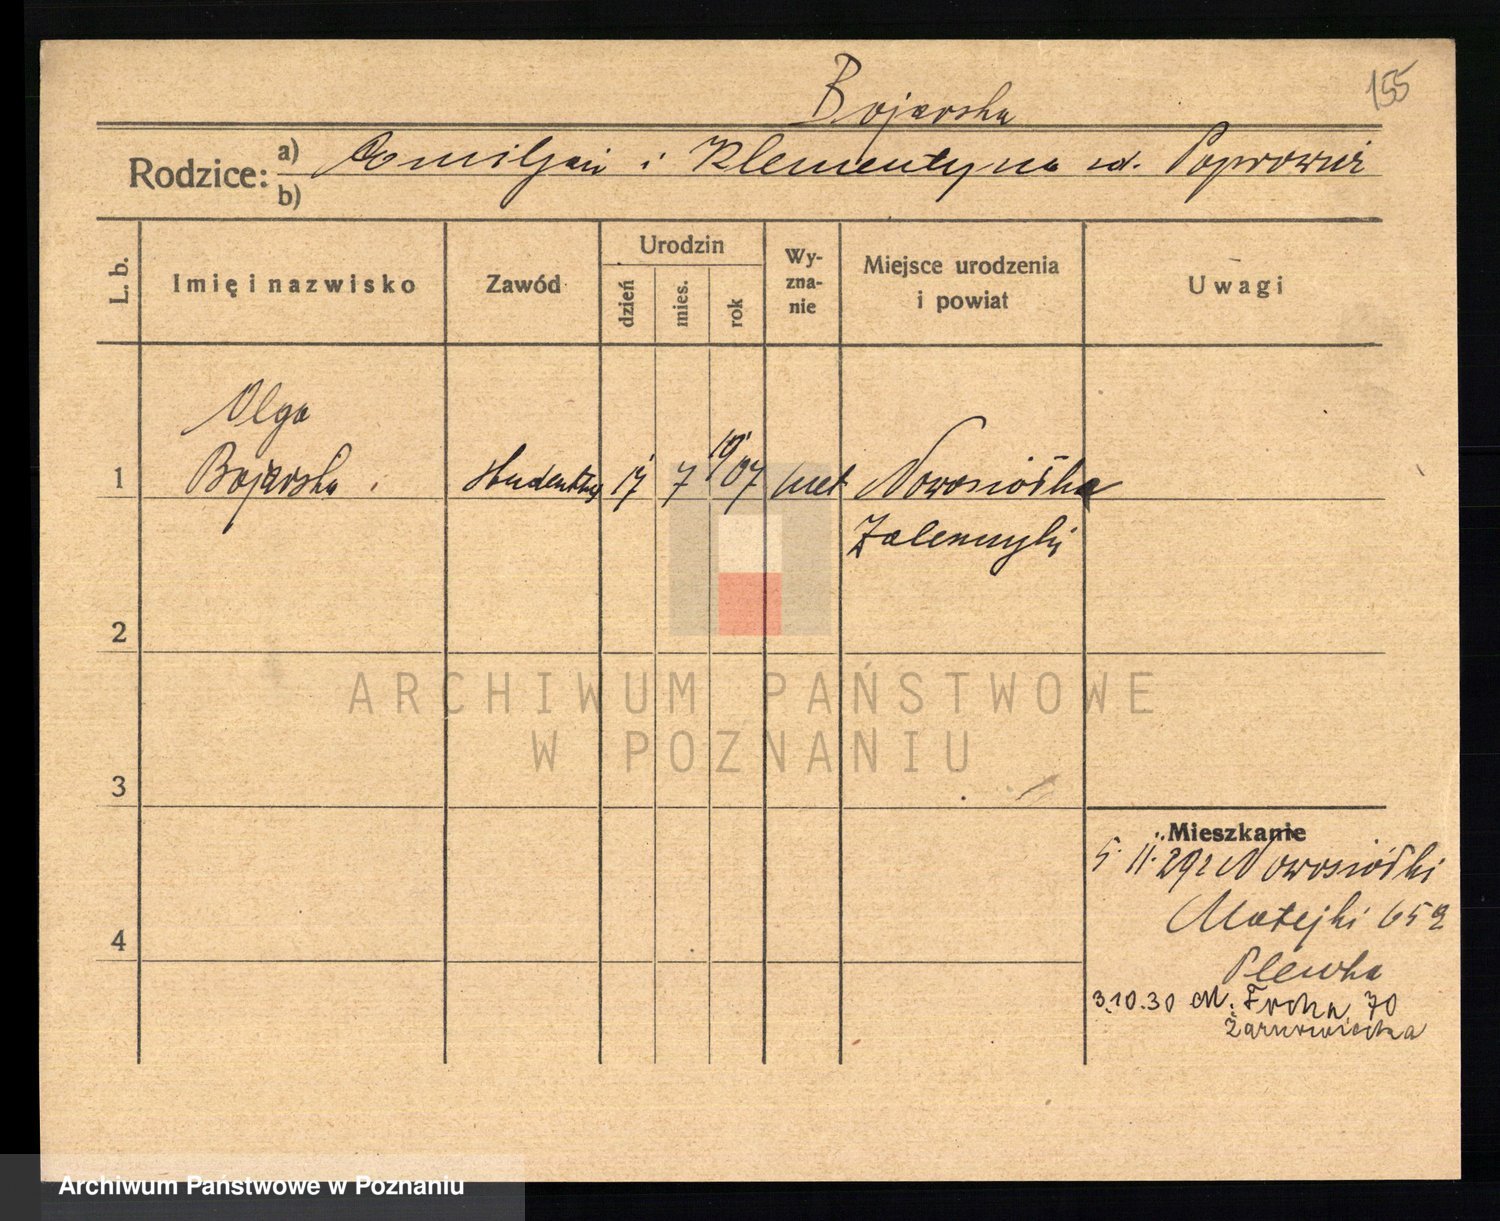 155
Bojarska
Rodzice: a) Emiljan i Klementyna ur.
b)
L. b.
Imię i nazwisko
Zawód
Urodzin
dzień
mies.
rok
Wy-
zna-
nie
Miejsce urodzenia
i powiat
Uwagi
Olga
1 Bojarska studentka 17 7 19/07 Nowosiółka
Zaleszczyki
2
ARCHIWUM PAŃSTWOWE
W POZNANIU
3
Mieszkanie
5. 11. 29 z Nowosiółki
Matejki 65
Plewka
4
3.10.30 M. Focha 70
Archiwum Państwowe w Poznaniu